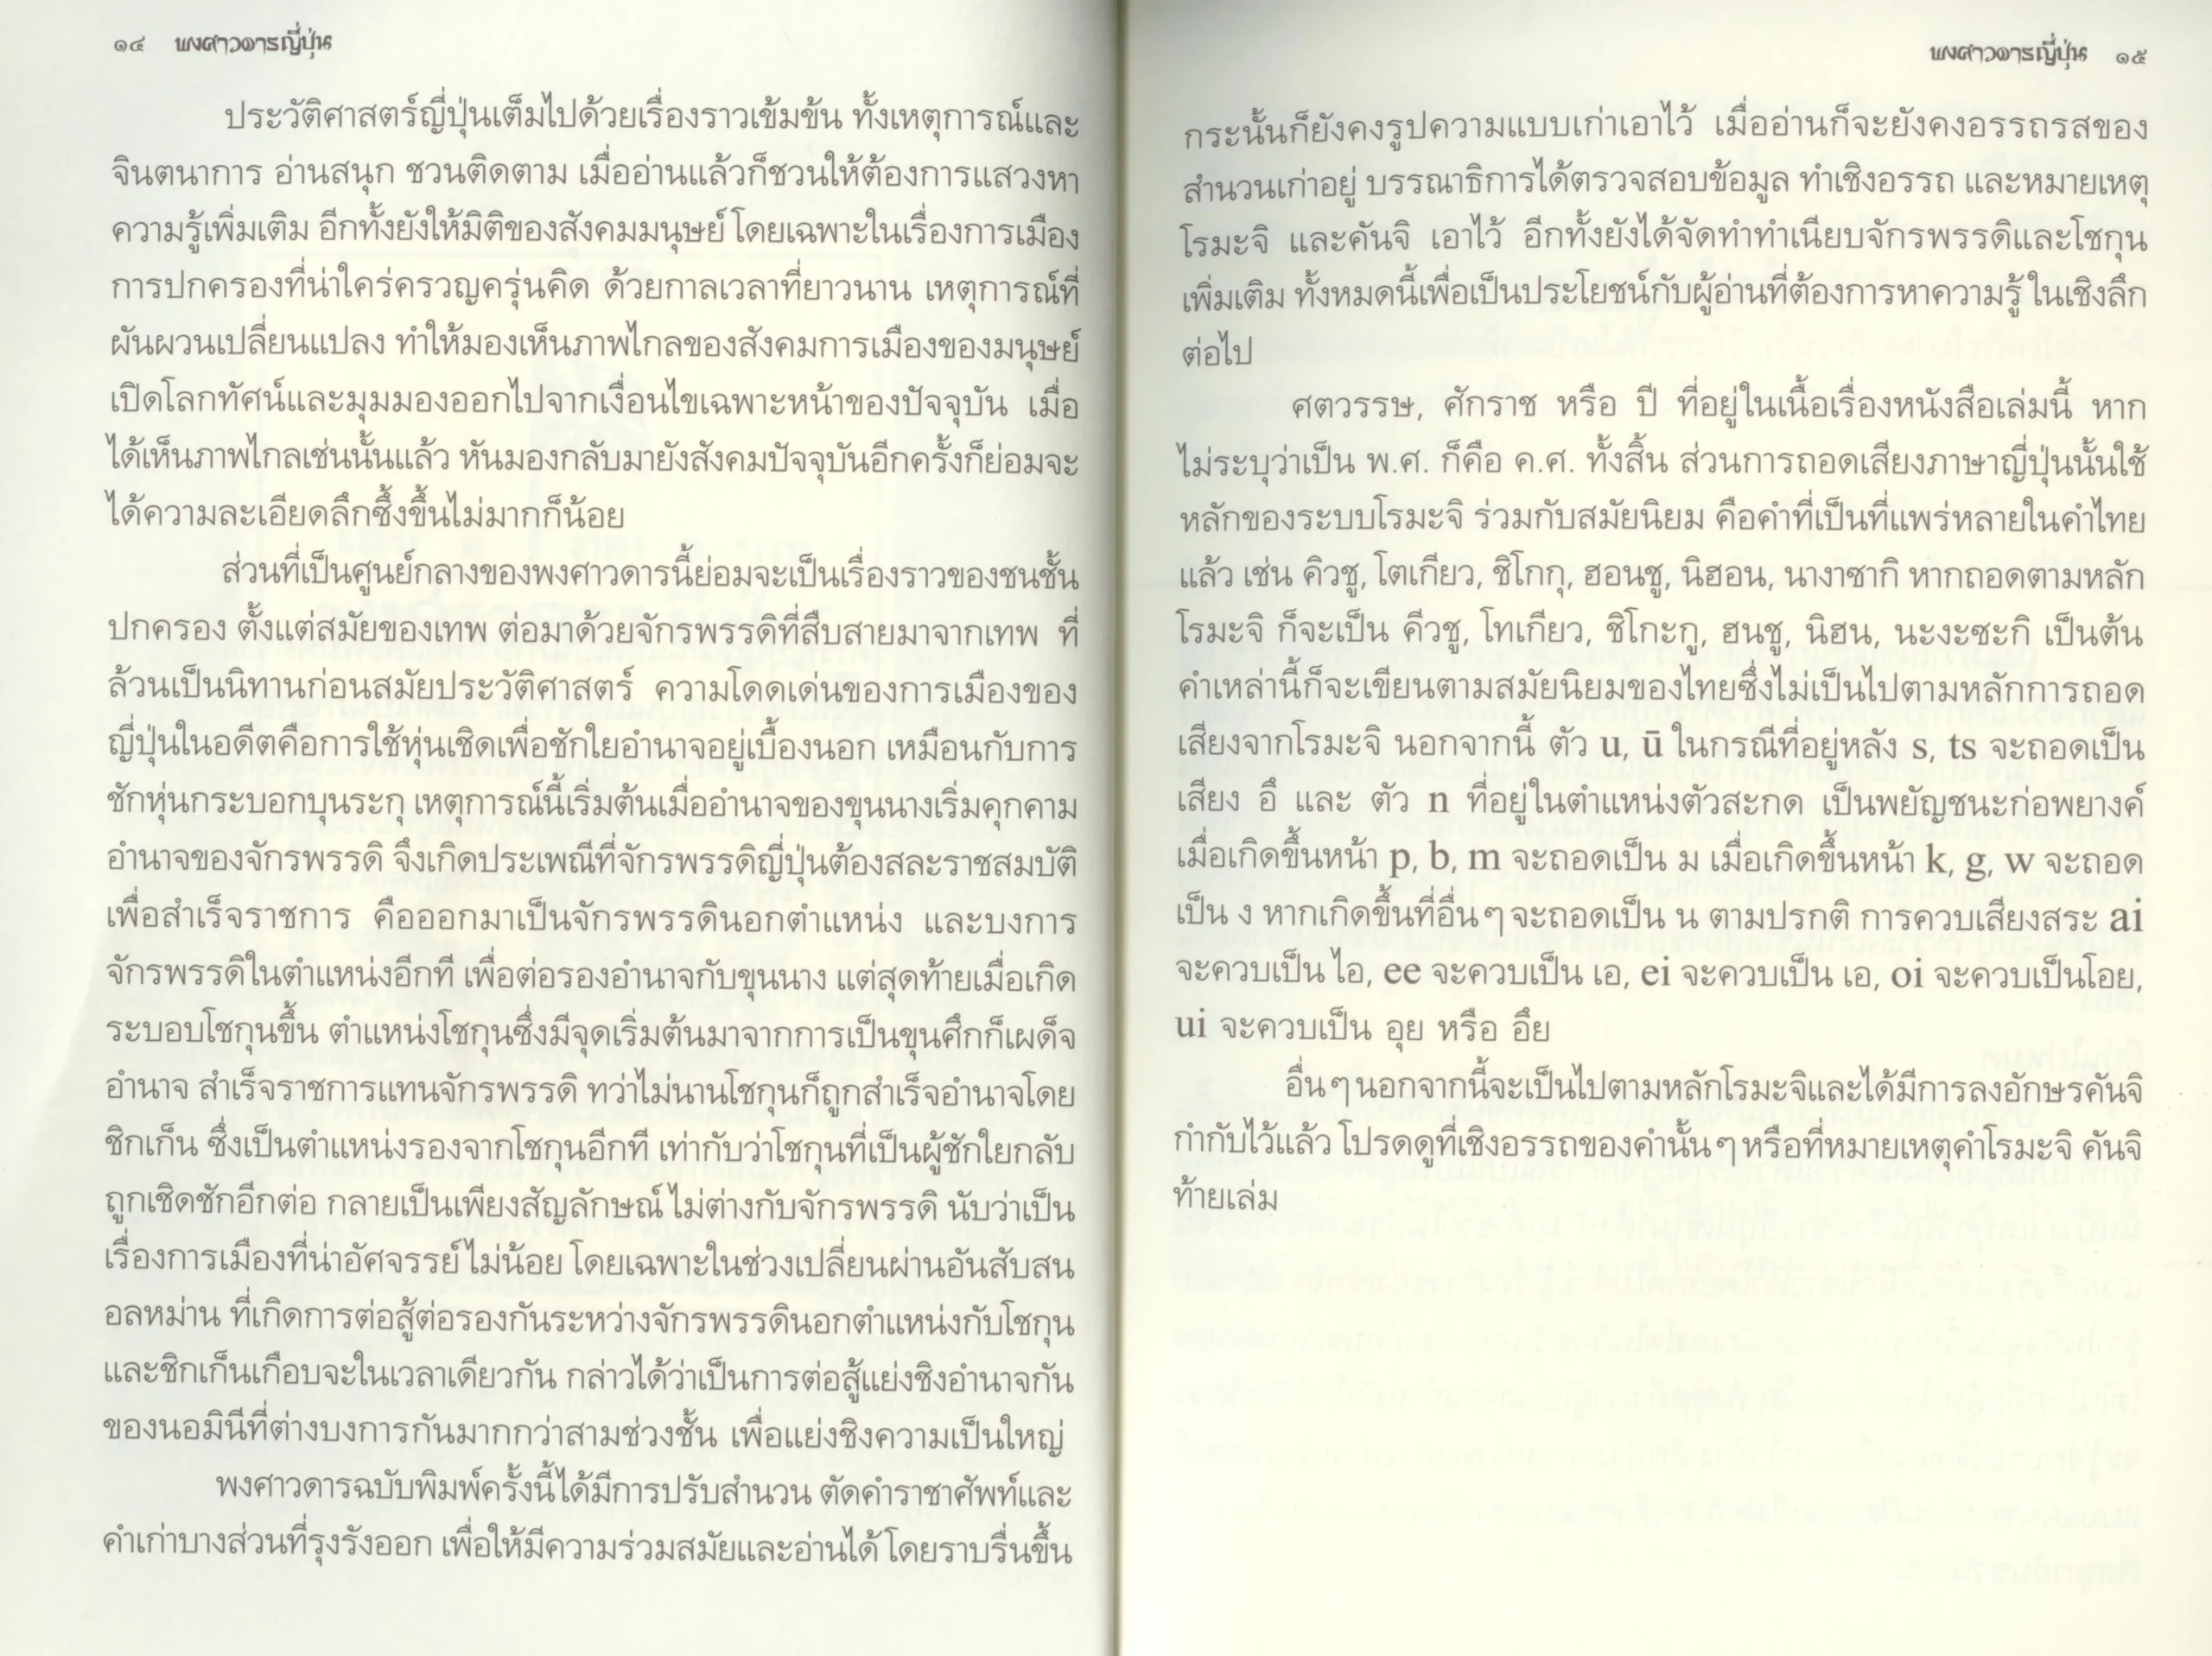 ๑๔ พงศาวดารญี่ปุ่น
ประวัติศาสตร์ญี่ปุ่นเต็มไปด้วยเรื่องราวเข้มข้น ทั้งเหตุการณ์และ
จินตนาการ อ่านสนุก ชวนติดตาม เมื่ออ่านแล้วก็ชวนให้ต้องการแสวงหา
ความรู้เพิ่มเติม อีกทั้งยังให้มิติของสังคมมนุษย์ โดยเฉพาะในเรื่องการเมือง
การปกครองที่น่าใคร่ครวญครุ่นคิด ด้วยกาลเวลาที่ยาวนาน เหตุการณ์ที่
ผันผวนเปลี่ยนแปลง ทำให้มองเห็นภาพไกลของสังคมการเมืองของมนุษย์
เปิดโลกทัศน์และมุมมองออกไปจากเงื่อนไขเฉพาะหน้าของปัจจุบัน เมื่อ
ได้เห็นภาพไกลเช่นนั้นแล้ว หันมองกลับมายังสังคมปัจจุบันอีกครั้งก็ย่อมจะ
ได้ความละเอียดลึกซึ้งขึ้นไม่มากก็น้อย
ส่วนที่เป็นศูนย์กลางของพงศาวดารนี้ย่อมจะเป็นเรื่องราวของชนชั้น
ปกครอง ตั้งแต่สมัยของเทพ ต่อมาด้วยจักรพรรดิที่สืบสายมาจากเทพ ที่
ล้วนเป็นนิทานก่อนสมัยประวัติศาสตร์ ความโดดเด่นของการเมืองของ
ญี่ปุ่นในอดีตคือการใช้หุ่นเชิดเพื่อชักใยอำนาจอยู่เบื้องนอก เหมือนกับการ
ชักหุ่นกระบอกบุนระกุ เหตุการณ์นี้เริ่มต้นเมื่ออำนาจของขุนนางเริ่มคุกคาม
อำนาจของจักรพรรดิ จึงเกิดประเพณีที่จักรพรรดิญี่ปุ่นต้องสละราชสมบัติ
เพื่อสำเร็จราชการ คือออกมาเป็นจักรพรรดินอกตำแหน่ง และบงการ
จักรพรรดิในตำแหน่งอีกที เพื่อต่อรองอำนาจกับขุนนาง แต่สุดท้ายเมื่อเกิด
ระบอบโชกุนขึ้น ตำแหน่งโชกุนซึ่งมีจุดเริ่มต้นมาจากการเป็นขุนศึกก็เผด็จ
อำนาจ สำเร็จราชการแทนจักรพรรดิ ทว่าไม่นานโชกุนก็ถูกสำเร็จอำนาจโดย
ชิกเก็น ซึ่งเป็นตำแหน่งรองจากโชกุนอีกที เท่ากับว่าโชกุนที่เป็นผู้ชักใยกลับ
ถูกเชิดชักอีกต่อ กลายเป็นเพียงสัญลักษณ์ ไม่ต่างกับจักรพรรดิ นับว่าเป็น
เรื่องการเมืองที่น่าอัศจรรย์ ไม่น้อย โดยเฉพาะในช่วงเปลี่ยนผ่านอันสับสน
อลหม่าน ที่เกิดการต่อสู้ต่อรองกันระหว่างจักรพรรดินอกตำแหน่งกับโชกุน
และชิกเก็นเกือบจะในเวลาเดียวกัน กล่าวได้ว่าเป็นการต่อสู้แย่งชิงอำนาจกัน
ของนอมินีที่ต่างบงการกันมากกว่าสามช่วงชั้น เพื่อแย่งชิงความเป็นใหญ่
พงศาวดารฉบับพิมพ์ครั้งนี้ได้มีการปรับสำนวน ตัดคำราชาศัพท์และ
คำเก่าบางส่วนที่รุงรังออก เพื่อให้มีความร่วมสมัยและอ่านได้ โดยราบรื่นขึ้น
พงศาวดารญี่ปุ่น ๑๕
กระนั้นก็ยังคงรูปความแบบเก่าเอาไว้ เมื่ออ่านก็จะยังคงอรรถรสของ
สำนวนเก่าอยู่ บรรณาธิการได้ตรวจสอบข้อมูล ทำเชิงอรรถ และหมายเหตุ
โรมะจิ และคันจิ เอาไว้ อีกทั้งยังได้จัดทำทำเนียบจักรพรรดิและโชกุน
เพิ่มเติม ทั้งหมดนี้เพื่อเป็นประโยชน์กับผู้อ่านที่ต้องการหาความรู้ ในเชิงลึก
ต่อไป
ศตวรรษ, ศักราช หรือ ปี ที่อยู่ในเนื้อเรื่องหนังสือเล่มนี้ หาก
ไม่ระบุว่าเป็น พ.ศ. ก็คือ ค.ศ. ทั้งสิ้น ส่วนการถอดเสียงภาษาญี่ปุ่นนั้นใช้
หลักของระบบโรมะจิ ร่วมกับสมัยนิยม คือคำที่เป็นที่แพร่หลายในคำไทย
แล้ว เช่น คิวชู, โตเกียว, ชิโกกุ, ฮอนชู, นิฮอน, นางาซากิ หากถอดตามหลัก
โรมะจิ ก็จะเป็น คีวชู, โทเกียว, ชิโกะกู, ฮนชู, นิฮน, นะงะซะกิ เป็นต้น
คำเหล่านี้ก็จะเขียนตามสมัยนิยมของไทยซึ่งไม่เป็นไปตามหลักการถอด
เสียงจากโรมะจิ นอกจากนี้ ตัว u, ū ในกรณีที่อยู่หลัง s, ts จะถอดเป็น
เสียง อึ และ ตัว n ที่อยู่ในตำแหน่งตัวสะกด เป็นพยัญชนะก่อพยางค์
เมื่อเกิดขึ้นหน้า p, b, m จะถอดเป็น ม เมื่อเกิดขึ้นหน้า k, g, w จะถอด
เป็น ง หากเกิดขึ้นที่อื่นๆ จะถอดเป็น น ตามปรกติ การควบเสียงสระ ai
จะควบเป็น ไอ, ee จะควบเป็น เอ, ei จะควบเป็น เอ, oi จะควบเป็นโอย,
ui จะควบเป็น อุย หรือ อึย
อื่นๆ นอกจากนี้จะเป็นไปตามหลักโรมะจิและได้มีการลงอักษรคันจิ
กำกับไว้แล้ว โปรดดูที่เชิงอรรถของคำนั้นๆ หรือที่หมายเหตุคำโรมะจิ คันจิ
ท้ายเล่ม